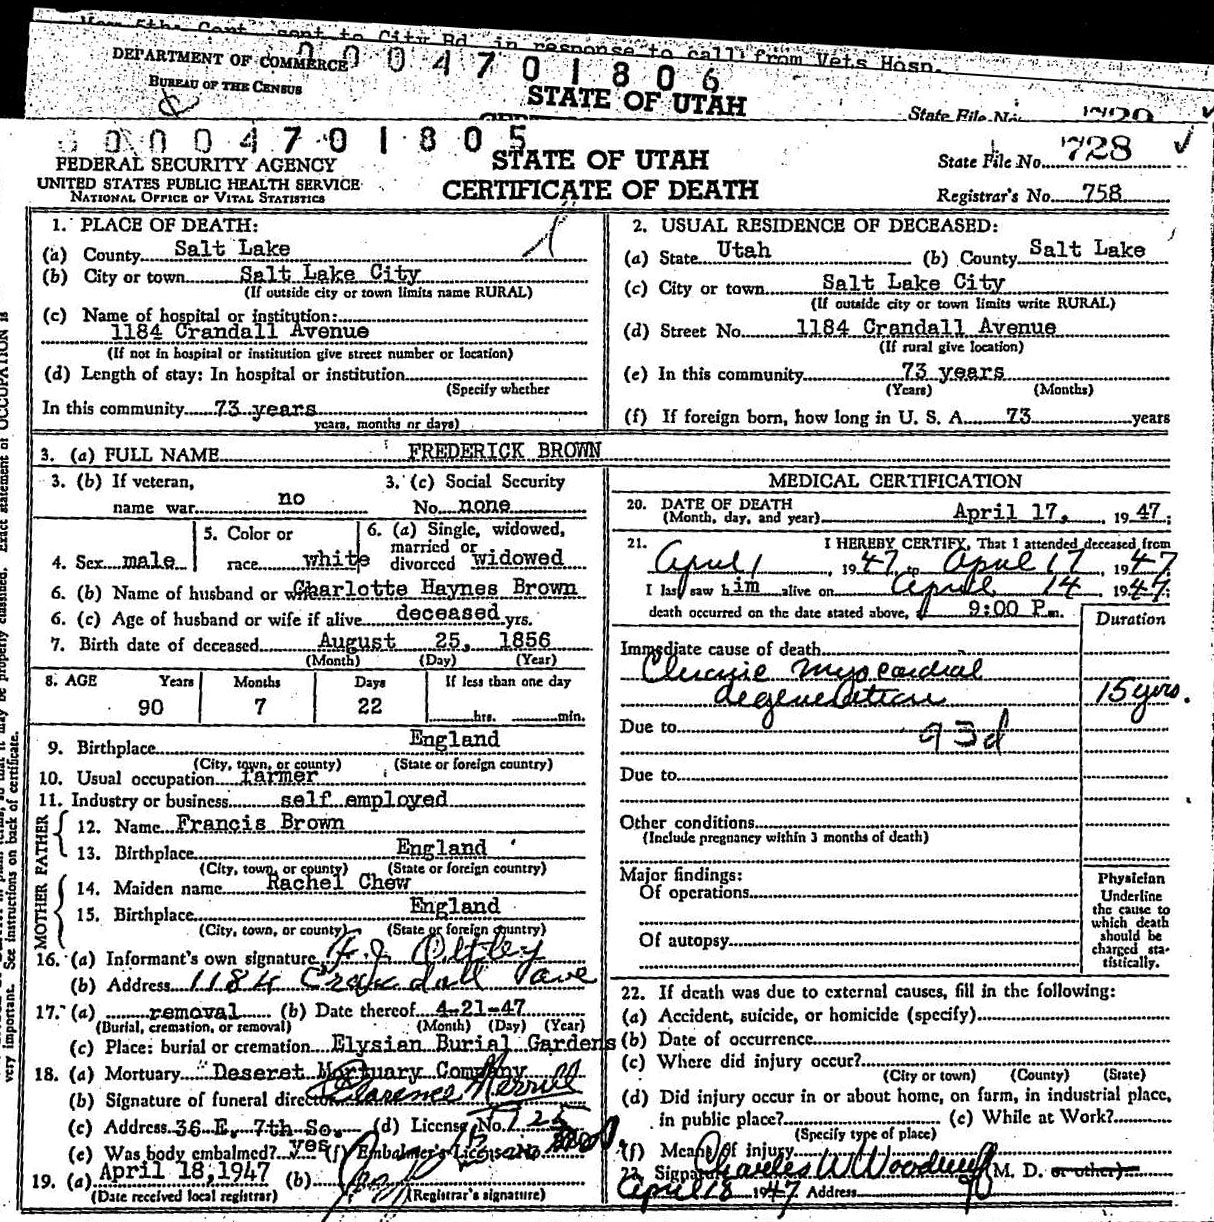 Vets Hosp.
DEPARTMENT OF COMMERCE
0004701806
BUREAU OF THE CENSUS
STATE OF UTAH
State File No.
00004701805
FEDERAL SECURITY AGENCY
UNITED STATES PUBLIC HEALTH SERVICE
NATIONAL OFFICE OF VITAL STATISTICS
STATE OF UTAH
CERTIFICATE OF DEATH
State File No. 728
Registrar's No. 758
1. PLACE OF DEATH:
(a) County Salt Lake
(b) City or town Salt Lake City
(If outside city or town limits name RURAL)
(c) Name of hospital or institution:
1184 Crandall Avenue
(If not in hospital or institution give street number or location)
(d) Length of stay: In hospital or institution
(Specify whether
In this community 73 years
years, months or days)
2. USUAL RESIDENCE OF DECEASED:
(a) State Utah (b) County Salt Lake
(c) City or town Salt Lake City
(If outside city or town limits write RURAL)
(d) Street No. 1184 Crandall Avenue
(If rural give location)
(e) In this community 73 years
(Years) (Months)
(f) If foreign born, how long in U. S. A. 73 years
3. (a) FULL NAME FREDERICK BROWN
3. (b) If veteran,
name war no
3. (c) Social Security
No. none
4. Sex male
5. Color or
race white
6. (a) Single, widowed,
married or
divorced widowed
6. (b) Name of husband or wife Charlotte Haynes Brown
6. (c) Age of husband or wife if alive deceased yrs.
7. Birth date of deceased August 25, 1856
(Month) (Day) (Year)
8. AGE Years Months Days If less than one day
90 7 22 hrs. min.
9. Birthplace England
(City, town, or county) (State or foreign country)
10. Usual occupation farmer
11. Industry or business self employed
FATHER
12. Name Francis Brown
13. Birthplace England
(City, town, or county) (State or foreign country)
MOTHER
14. Maiden name Rachel Chew
15. Birthplace England
(City, town, or county) (State or foreign country)
16. (a) Informant's own signature F. J. Ottley
(b) Address 1184 Crandall Ave
17. (a) removal (b) Date thereof 4-21-47
(Burial, cremation, or removal) (Month) (Day) (Year)
(c) Place: burial or cremation Elysian Burial Gardens
18. (a) Mortuary Deseret Mortuary Company
(b) Signature of funeral director Clarence Merrill
(c) Address 36 E. 7th So. (d) License No. 725
(e) Was body embalmed? yes (f) Embalmer's License No.
19. (a) April 18, 1947 (b)
(Date received local registrar) (Registrar's signature)
MEDICAL CERTIFICATION
20. DATE OF DEATH
(Month, day, and year) April 17, 1947;
21. I HEREBY CERTIFY, That I attended deceased from
April 1 1947 to April 17 1947
I last saw him alive on April 14 1947;
death occurred on the date stated above, 9:00 P.m.
Duration
Immediate cause of death
Chronic myocardial
degeneration 15 yrs.
Due to 93d
Due to
Other conditions
(Include pregnancy within 3 months of death)
Major findings:
Of operations
Of autopsy
Physician
Underline
the cause to
which death
should be
charged sta-
tistically.
22. If death was due to external causes, fill in the following:
(a) Accident, suicide, or homicide (specify)
(b) Date of occurrence
(c) Where did injury occur?
(City or town) (County) (State)
(d) Did injury occur in or about home, on farm, in industrial place,
in public place? (e) While at Work?
(Specify type of place)
(f) Means of injury
23. Signature Charles W Woodruff (M. D. or other)
April 18 1947 Address
very important. See instructions on back of certificate.
Exact statement of OCCUPATION is